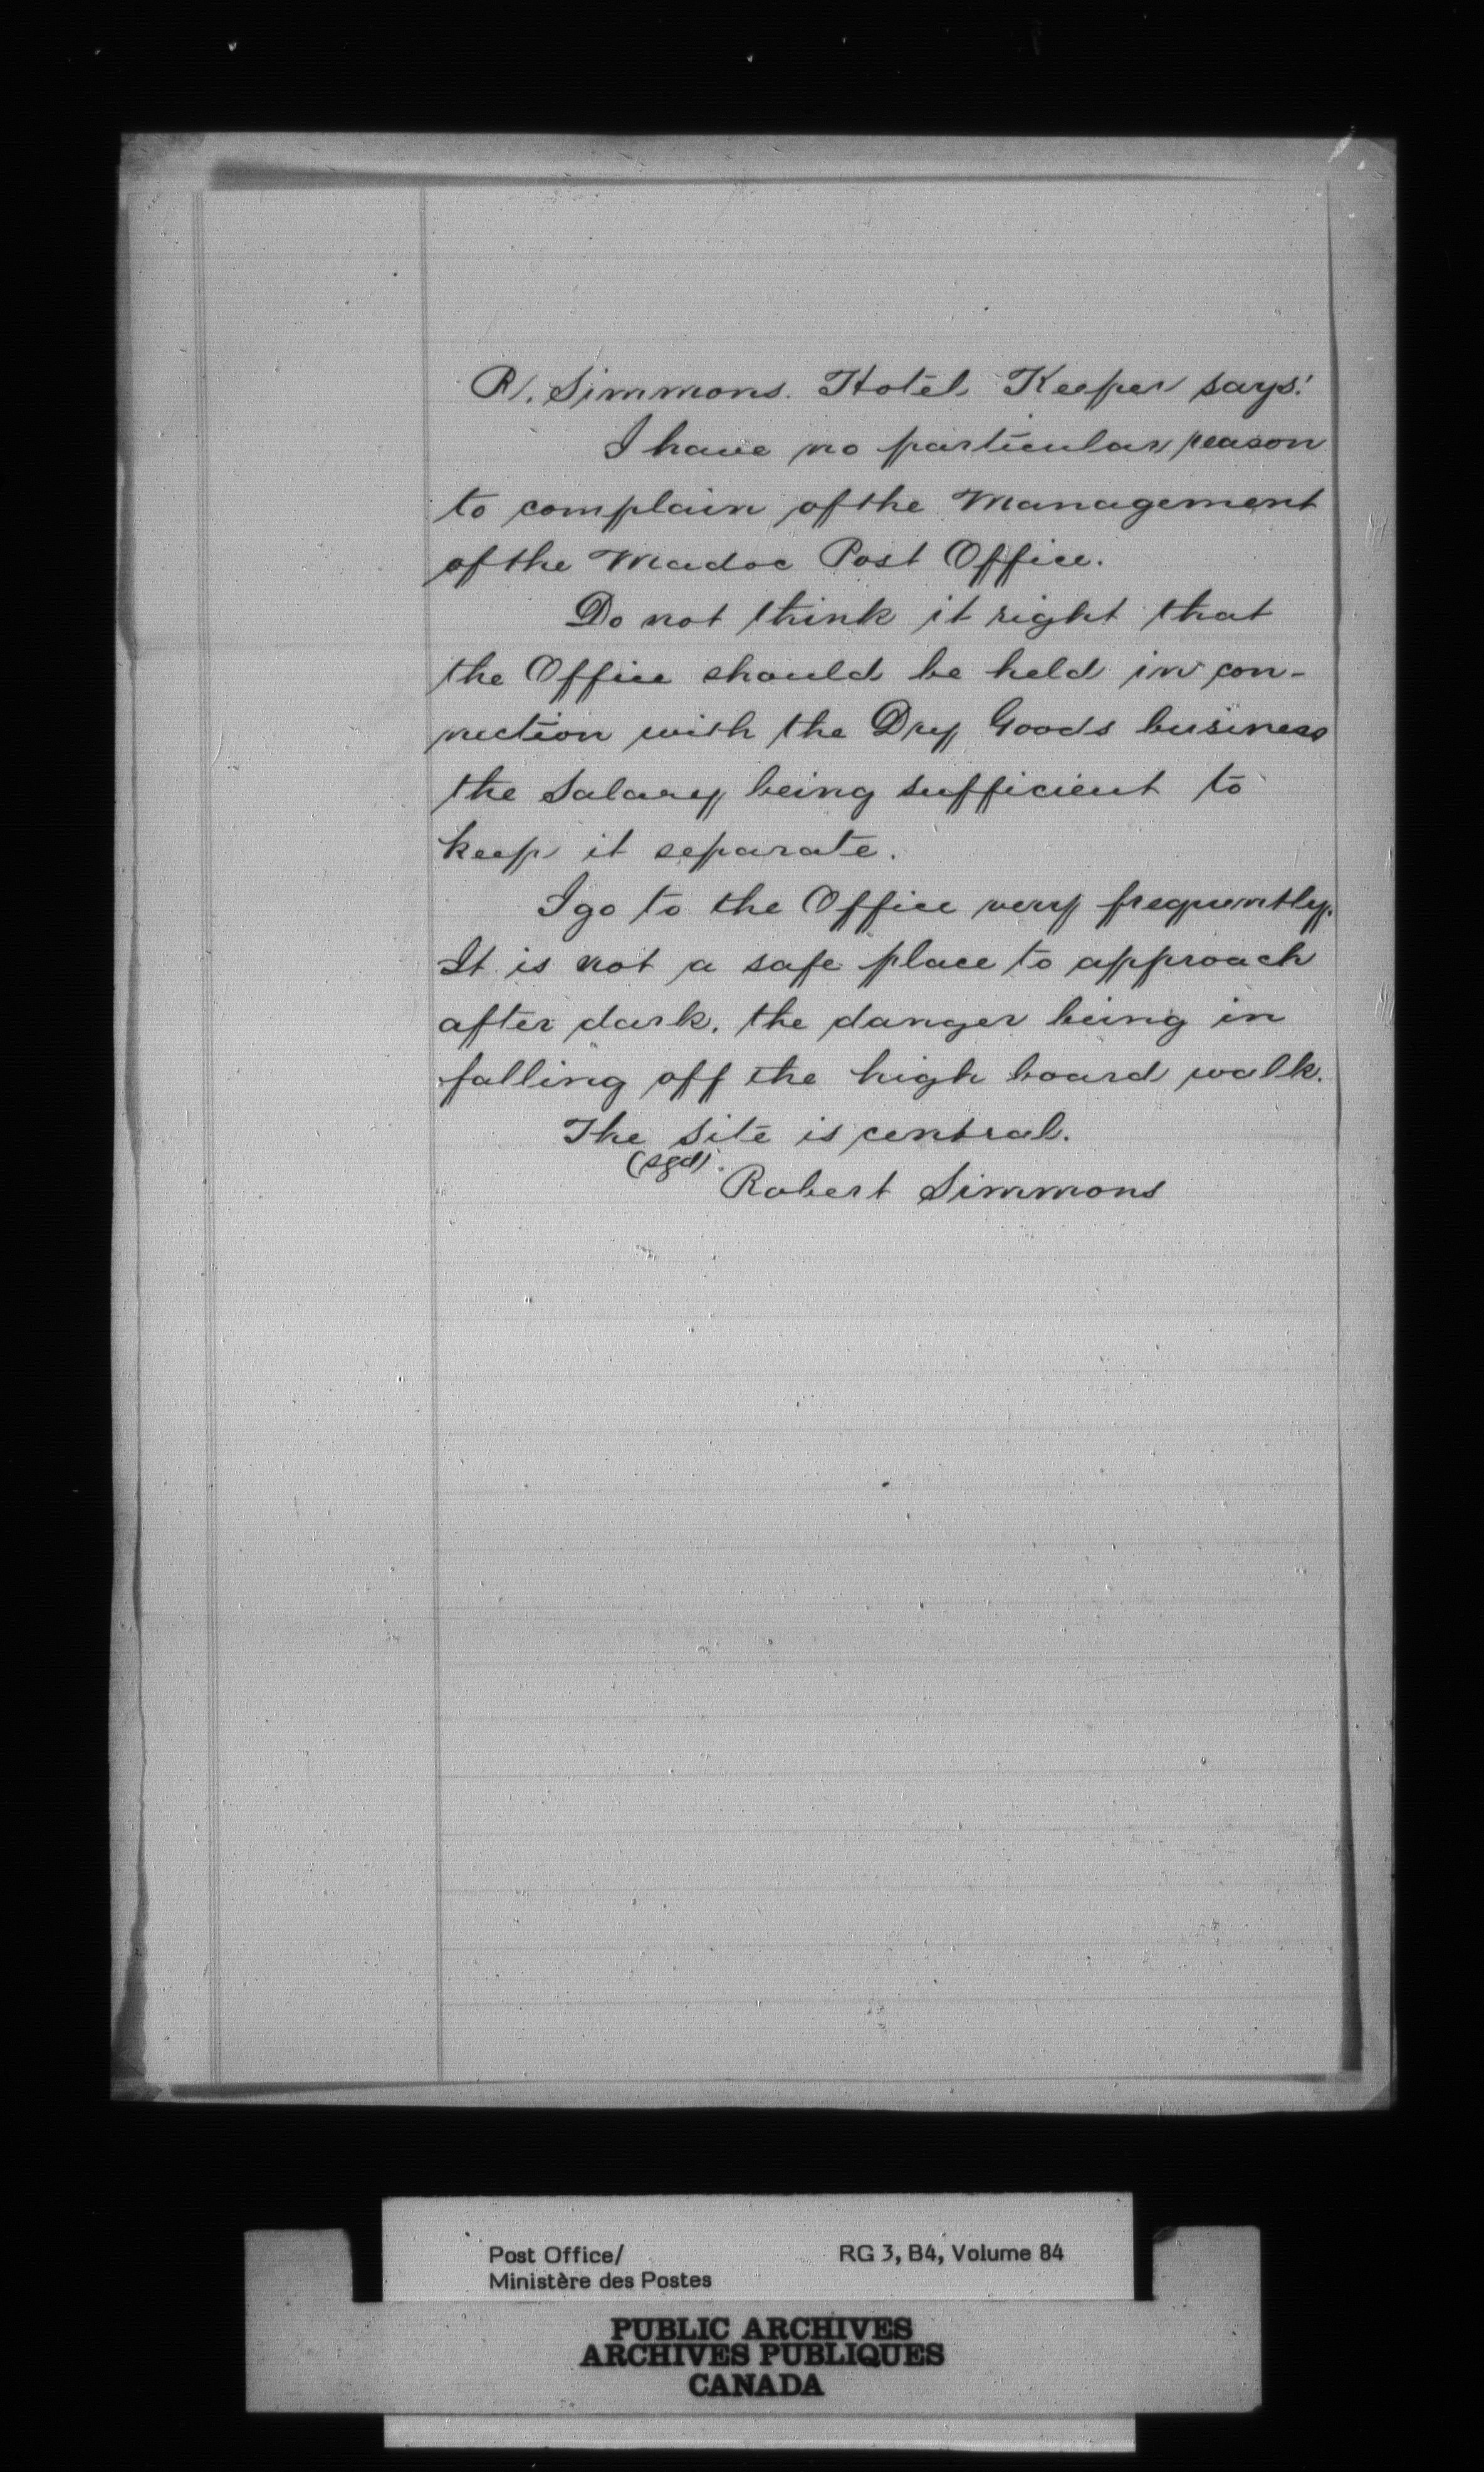 R. Simmons. Hotel Keeper says:
I have no particular reason
to complain of the Management
of the Madoc Post Office.
Do not think it right that
the Office should be held in con-
nection with the Dry Goods business
the Salary being sufficient to
keep it separate.
I go to the Office very frequently.
It is not a safe place to approach
after dark, the danger being in
falling off the high board walk.
The Site is central.
(sgd).
Robert Simmons
Post Office/
Ministère des Postes
RG 3, B4, Volume 84
PUBLIC ARCHIVES
ARCHIVES PUBLIQUES
CANADA